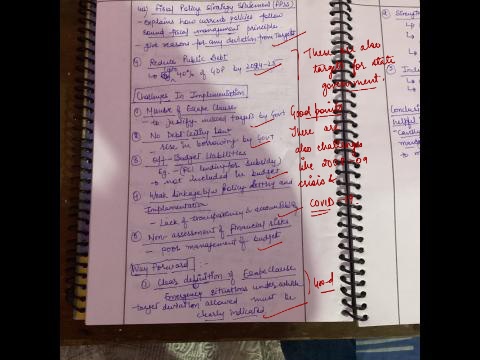 4a) Fiscal Policy Strategy Statement (FPSS)
- explains how current policies follow
sound fiscal management principle
- give reasons for any deviation from targets
5) Reduce Public Debt
↳ 40% of GDP by 2024-25
There are also
target for state
government.
Challenges In Implementation
① Misuse of Escape Clause
- to justify missed targets by Govt
② No Debt Ceiling Law
- rise in borrowing by Govt
③ Off-Budget Liabilities
Eg. - (FCI lending for subsidy)
↳ not included in budget
④ Weak Linkage b/w Policy Setting and
Implementation
- Lack of transparency & accountability
⑤ Non-assessment of financial risks
- poor management of budget
Good points
There are
also challenges
like 2008-09
crisis &
COVID
Way Forward :-
① Clear definition of Escape Clause
Emergency situations under
- target deviation allowed must be
clearly indicated
Good
② Strength
③ Inde
Conclusion
helpful